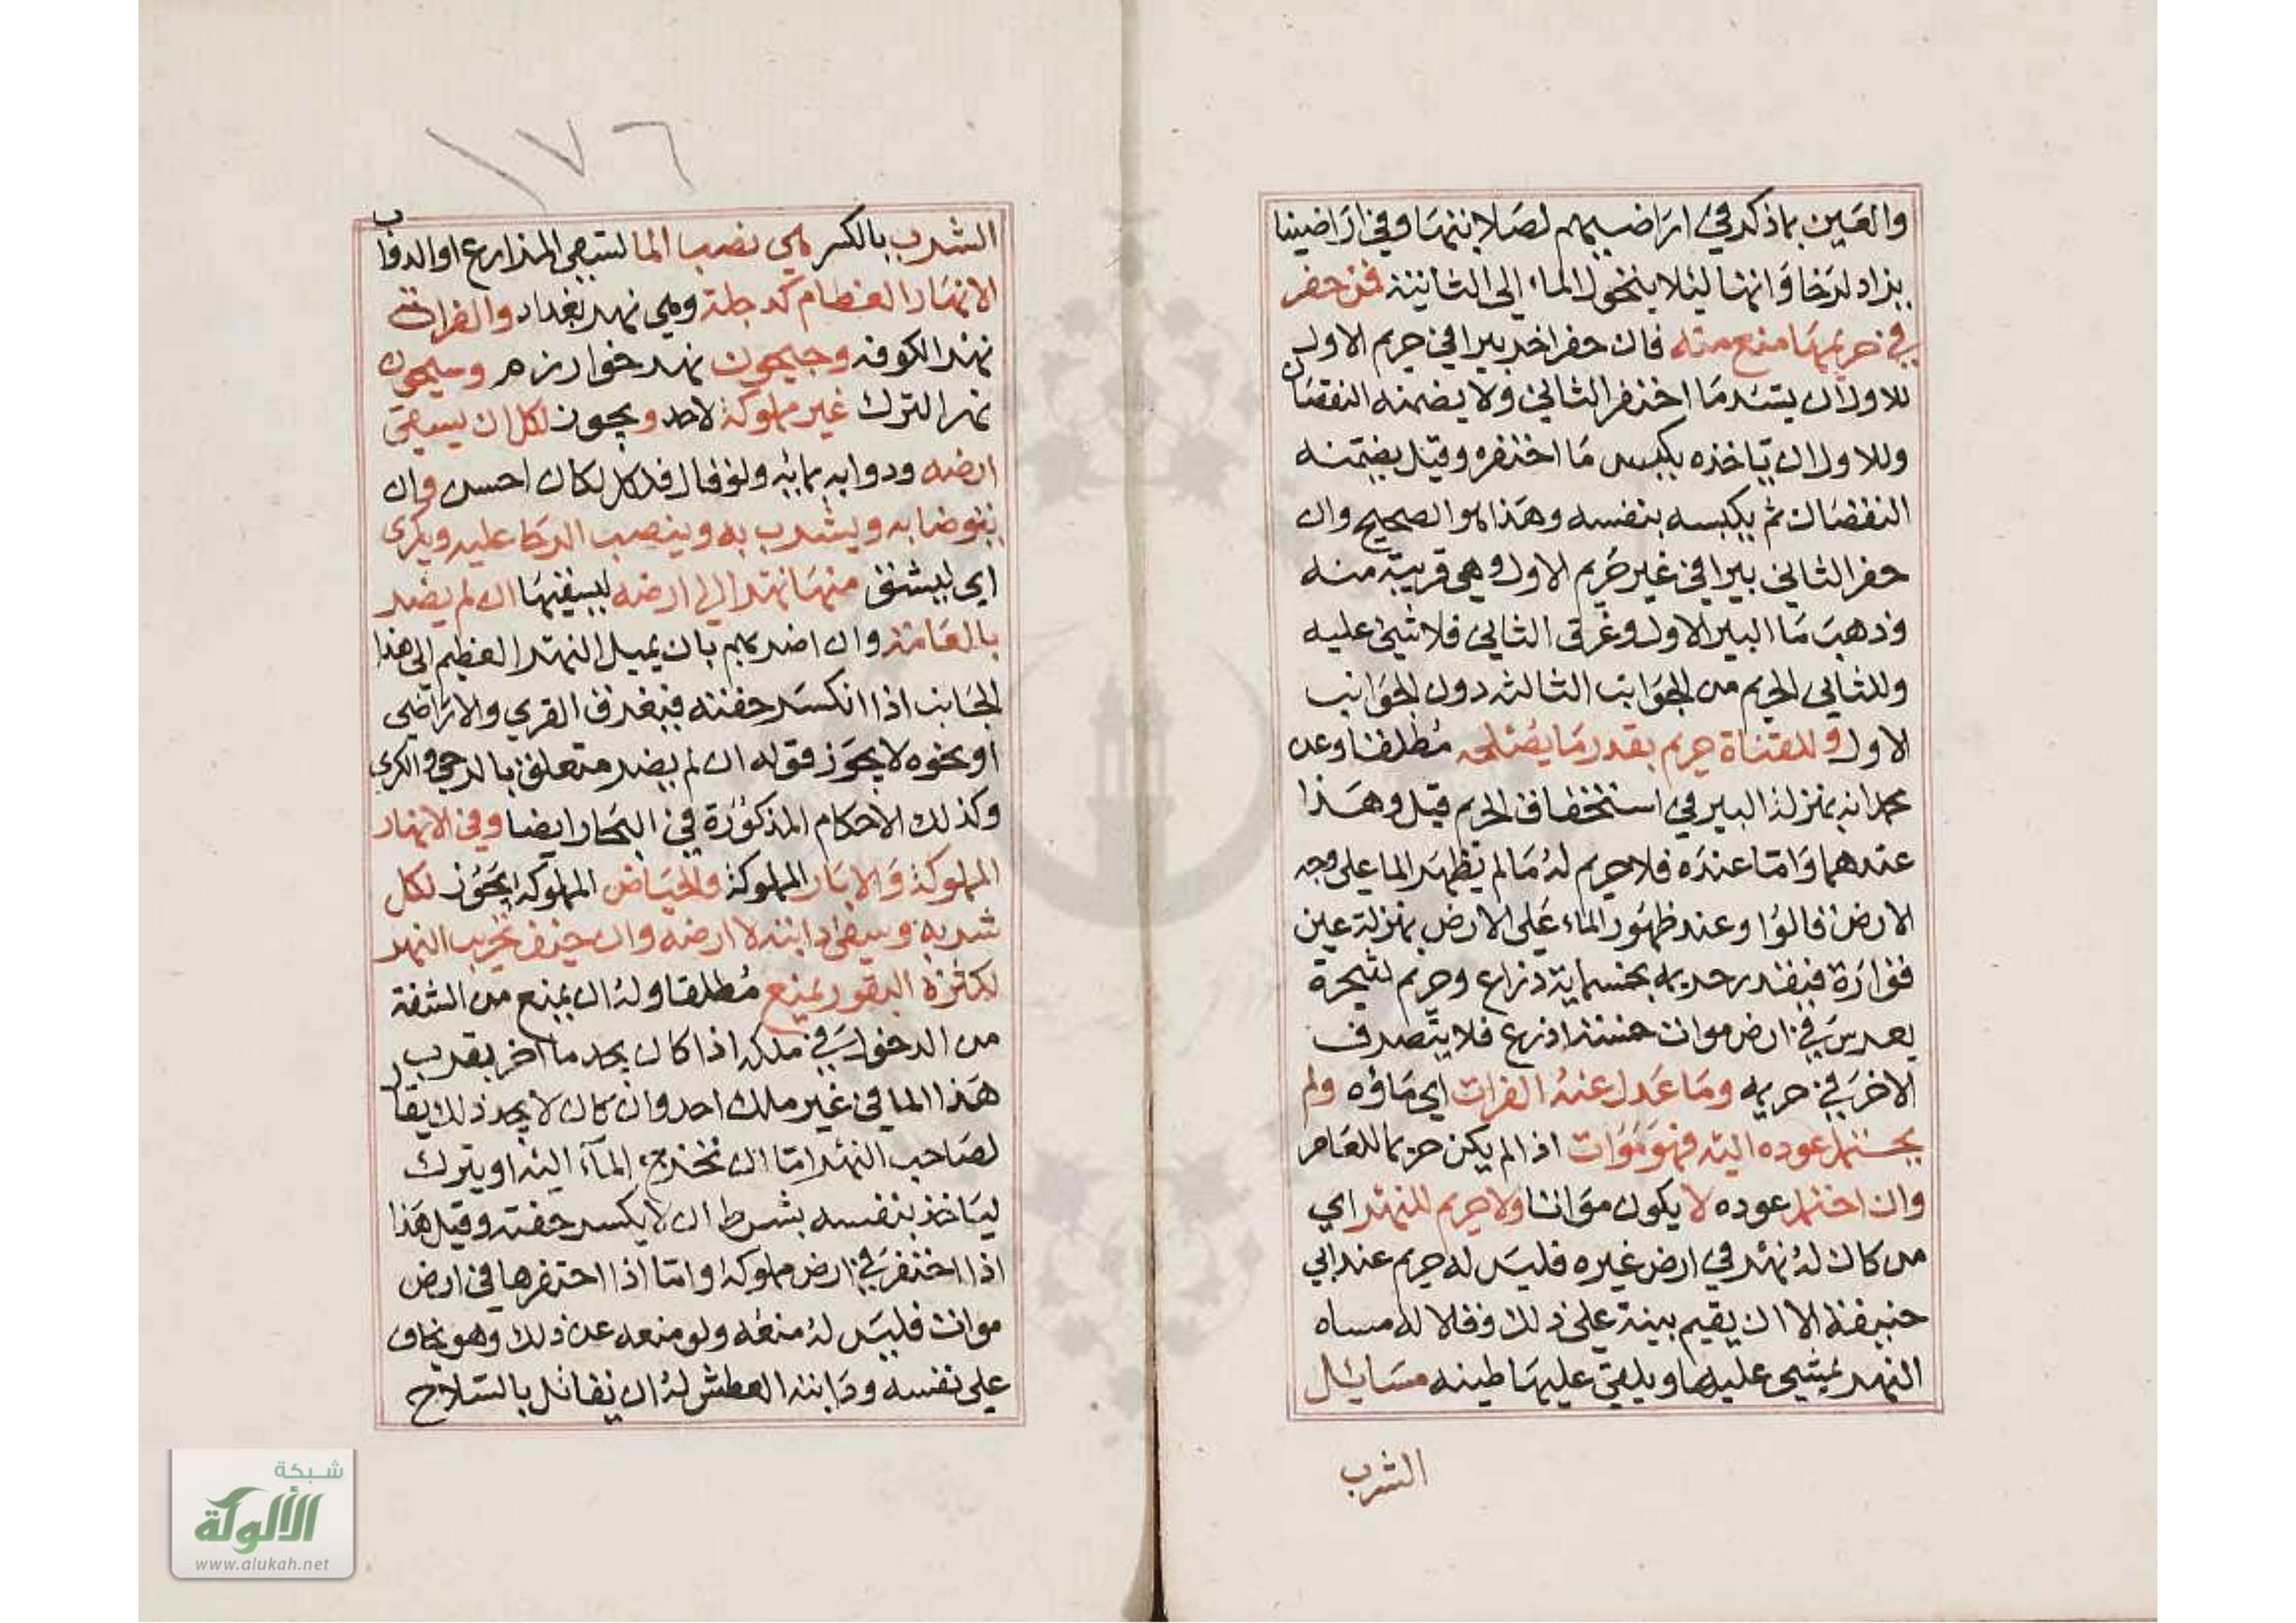 والعين بما ذكر في اراضيهم لصلابتها وفي اراضينا
يزاد لرخاوتها لئلا يتحول الماء الى الثانية فمن حفر
في حريمها منع منه فان حفر اخر بيرا في حريم الاول
للاول ان يسد ما احتفر الثاني ولا يضمنه النقصان
وللاول ان ياخذه بكبس ما احتفره وقيل يضمنه
النقصان ثم يكبسه بنفسه وهذا هو الصحيح وان
حفر الثاني بيرا في غير حريم الاول وهي قريبة منه
وذهب ما البير الاول وعرق الثاني فلا شي عليه
وللثاني الحريم من الجوانب الثالثه دون الجوانب
الاول وللقناة حريم بقدر ما يصلحه مطلقا وعن
محمد انه بمنزلة البير في استحقاق الحريم قيل وهذا
عندهما واما عنده فلا حريم له ما لم يظهر الما على وجه
الارض قالوا وعند ظهور الماء على الارض بمنزلة عين
فوارة فيقدر حريمه بخمسماية ذراع وحريم لشجرة
يغرس في ارض موات خمسة اذرع فلا يتصرف
الاخر في حريمه وما عدل عنه الفرات اي ماؤه ولم
يحتمل عوده اليه فهو موات اذا لم يكن حريما للعامر
وان احتمل عوده لا يكون مواتا ولا حريم للنهر اي
من كان له نهر في ارض غيره فليس له حريم عند ابي
حنيفة الا ان يقيم بينة على ذلك وقالا له مسناه
النهر يمشي عليها ويلقي عليها طينه مسايل
الشرب
١٧٦
الشرب بالكسر هي نصيب الما لتسقي المزارع او الدواب
الانهار العظام كدجلة وهي نهر بغداد والفرات
نهر الكوفه وجيحون نهر خوارزم وسيحون
نهر الترك غير مملوكة لاحد ويجوز لكل ان يسقي
ارضه ودوابه بمائه ولو قال فلكل لكان احسن وان
يتوضا به ويشرب به وينصب الرحا عليه ويكري
اي يشق منها نهرا الى ارضه ليسقيها ان لم يضر
بالعامة وان اضر بهم بان يميل النهر العظيم الى هذا
الجانب اذا انكسر حفته فيغرق القرى والاراضي
او نحوه لا يجوز فقوله ان لم يضر متعلق بالرحي والكري
وكذلك الاحكام المذكورة في البحار ايضا وفي الانهار
المملوكة والابار المملوكة والحياض المملوكة يجوز لكل
شربه وسقي دابته لا ارضه وان خيف تخريب النهر
لكثرة البقور يمنع مطلقا وله ان يمنع من الشفة
من الدخول في ملكه اذا كان يجد ما اخر بقرب
هذا الما في غير ملك احد وان كان لا يجد ذلك يقال
لصاحب النهر اما ان تخرج المآء اليه او يترك
لياخذ بنفسه بشرط ان لا يكسر حفته وقيل هذا
اذا احتفر في ارض مملوكه واما اذا احتفرها في ارض
موات فليس له منعه ولو منعه عن ذلك وهو يخاف
على نفسه ودابته العطش له ان يقاتل بالسلاح
شبكة
الألوكة
www.alukah.net